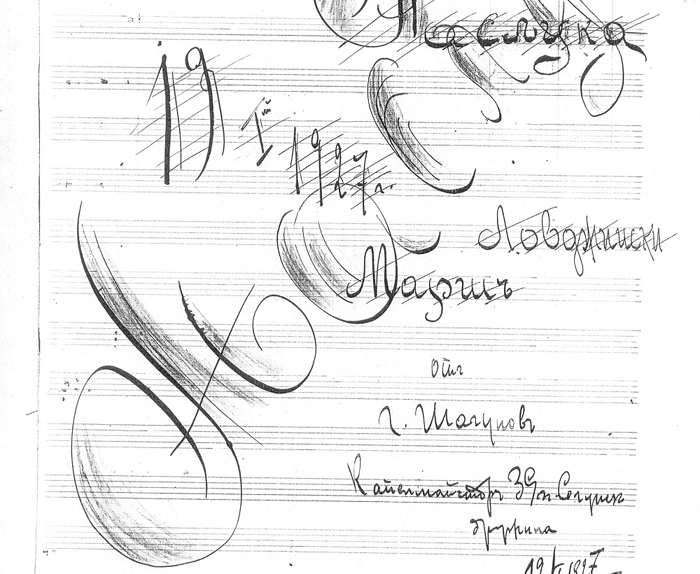 Наслука
19 I 1927 г.
Ловджииски
Маршъ
отъ
Г. Шагуновъ
Капелмайсторъ 39 п. Солунск
дружина